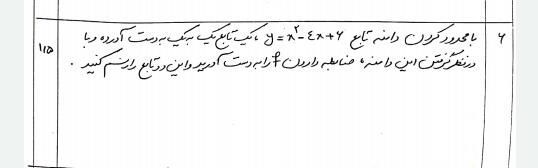 ۶ با محدود کردن دامنه تابع y = x² - ۴x + ۶ ، یک تابع یک به یک به دست آورده و با
در نظر گرفتن این دامنه، ضابطه وارون f را به دست آورید و این دو تابع را رسم کنید . ۱/۵